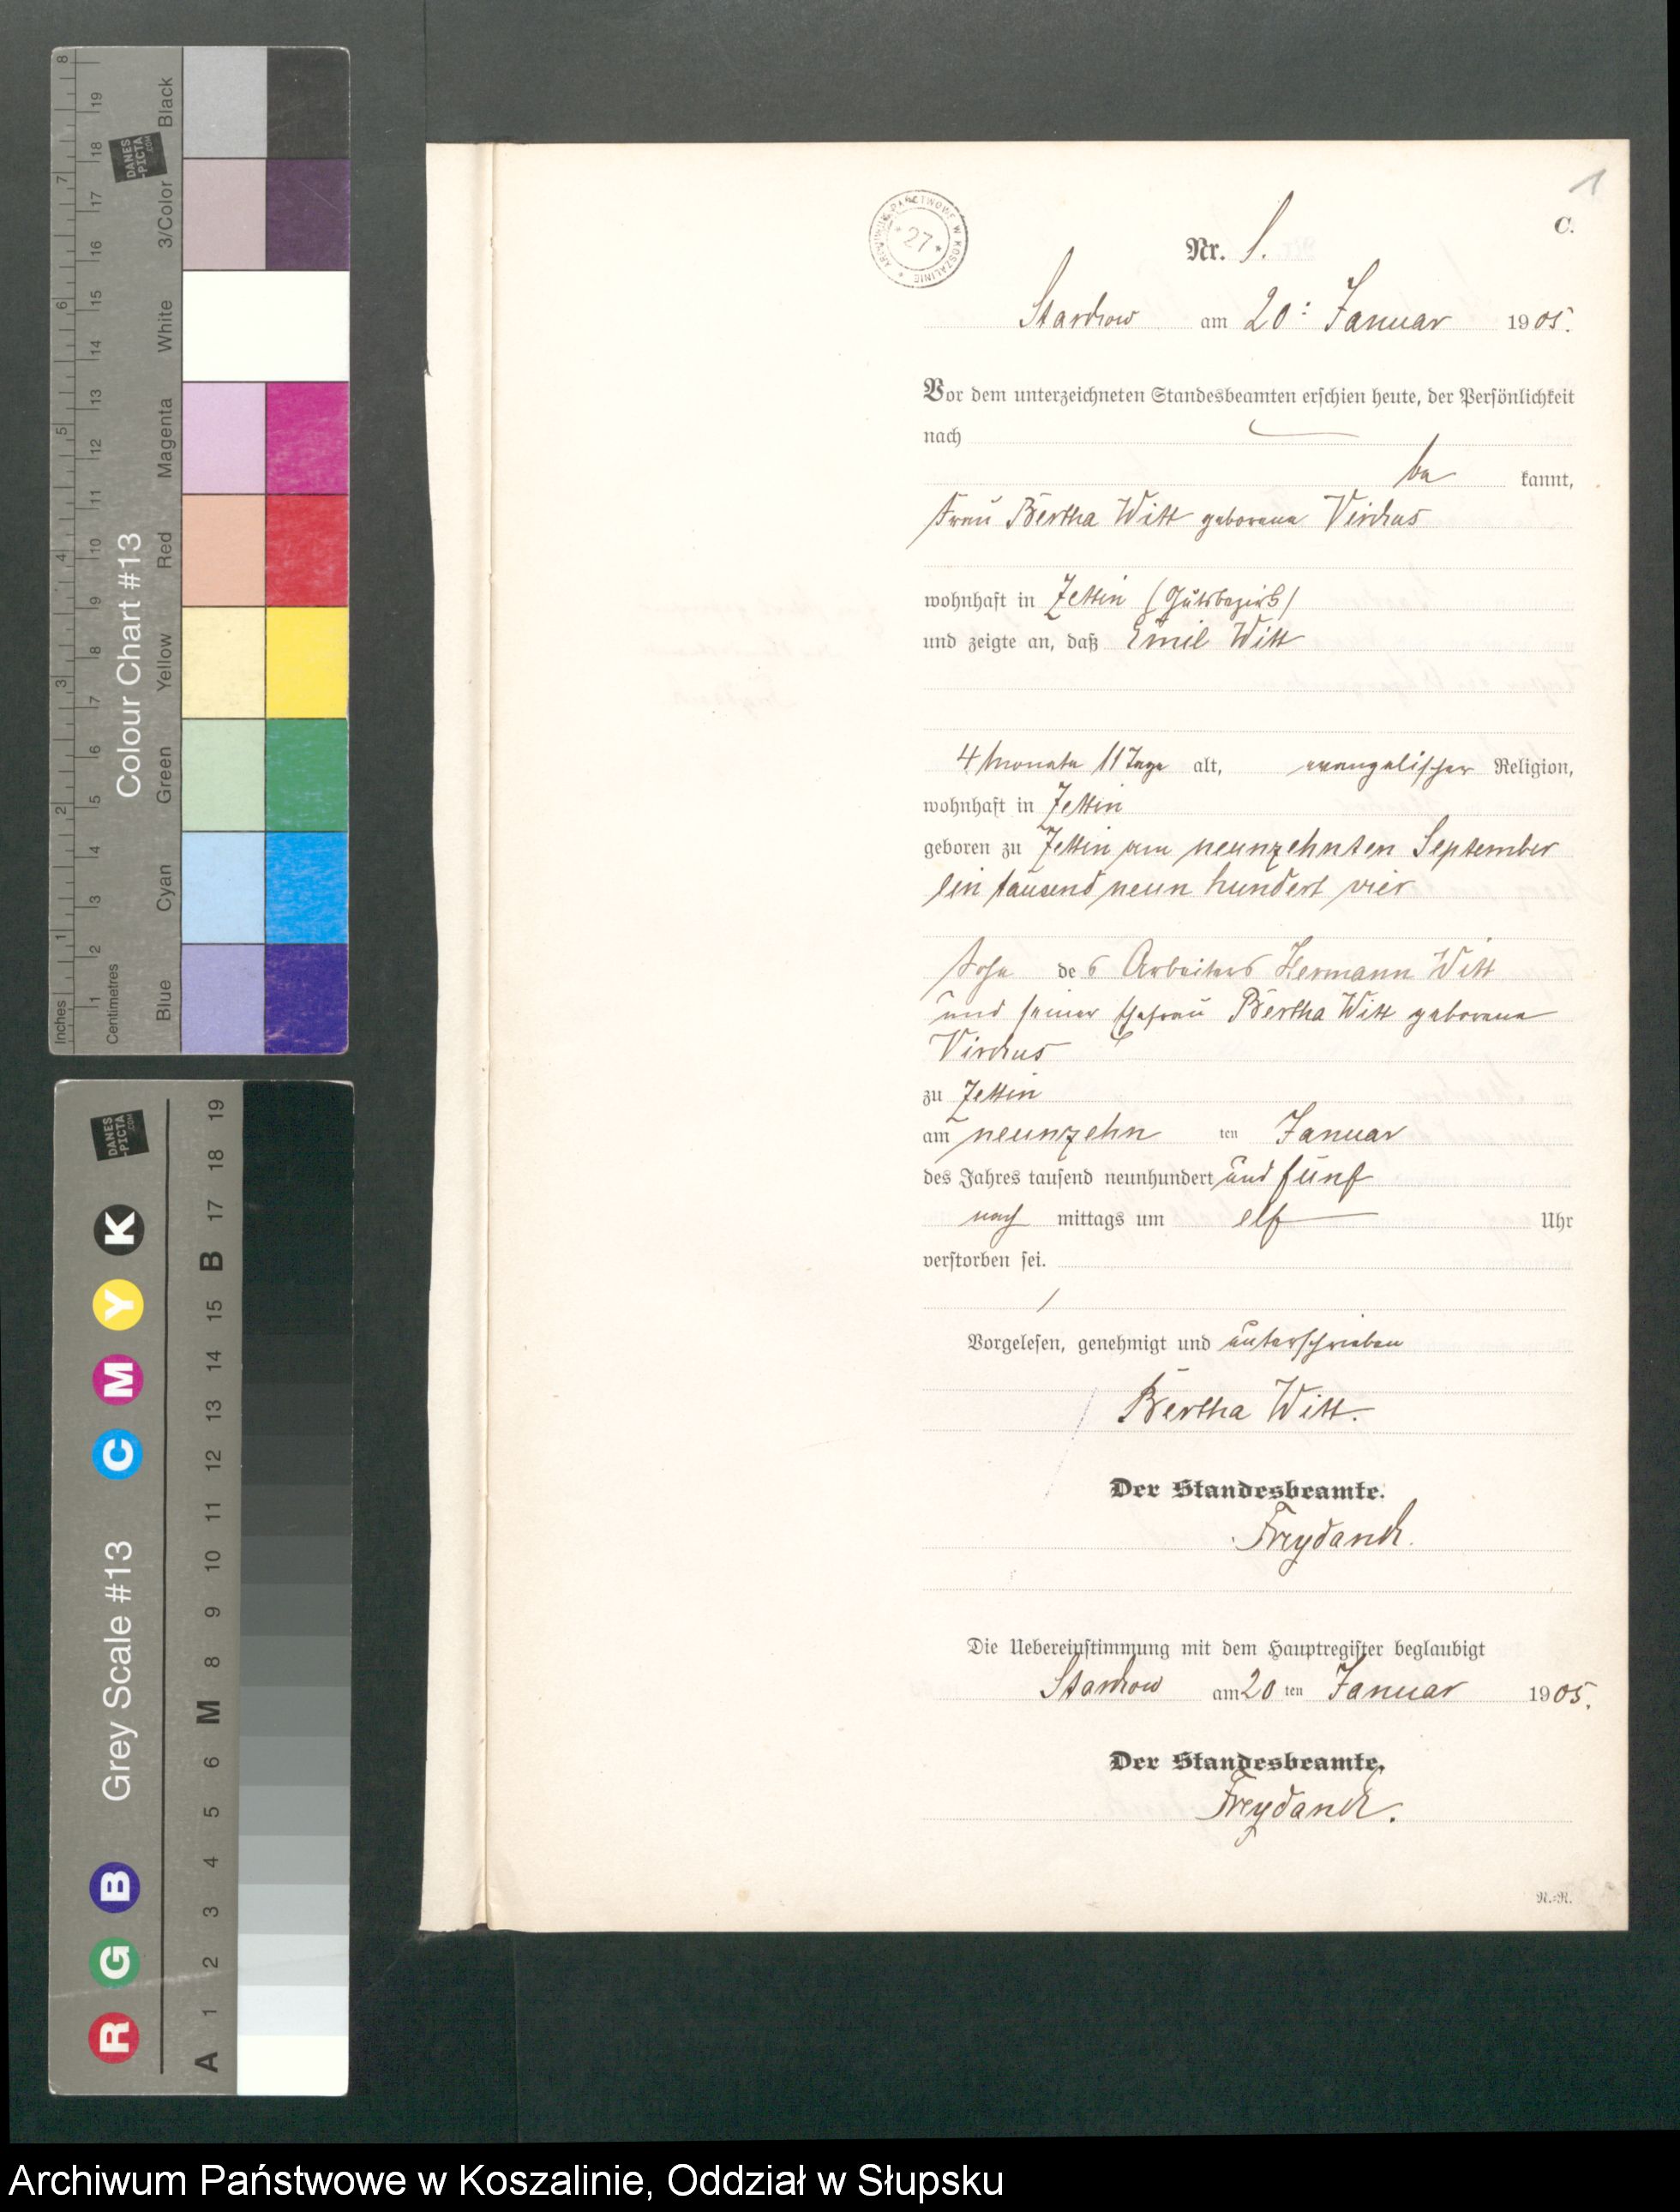 8 7 6 5 4 3 2 1 Inches
19 18 17 16 15 14 13 12 11 10 9 8 7 6 5 4 3 2 1 Centimetres
DANES
-PICTA
.COM
Colour Chart #13
Black
3/Color
White
Magenta
Red
Yellow
Green
Cyan
Blue
DANES
-PICTA
.COM
Grey Scale #13
R G B C M Y K
A 1 2 3 4 5 6 M 8 9 10 11 12 13 14 15 B 17 18 19
1
C.
ARCHIWUM PAŃSTWOWE W KOSZALINIE
* 27 *
Nr. 1.
am 20: Januar 1905.
Vor dem unterzeichneten Standesbeamten erschien heute, der Persönlichkeit
nach
be kannt,
Frau Bertha Witt geborene Virchus
wohnhaft in Zettin (Gutsbezirk)
und zeigte an, daß Emil Witt
4 Monate 11 Tage alt, evangelischer Religion,
wohnhaft in Zettin
geboren zu Zettin am neunzehnten September
ein tausend neun hundert vier
Sohn des Arbeiters Hermann Witt
und seiner Ehefrau Bertha Witt geborene
Virchus
zu Zettin
am neunzehn ten Januar
des Jahres tausend neunhundert und fünf
nach mittags um elf Uhr
verstorben sei.
Vorgelesen, genehmigt und unterschrieben
Bertha Witt.
Der Standesbeamte.
Freydanck.
Die Uebereinstimmung mit dem Hauptregister beglaubigt
am 20 ten Januar 1905.
Der Standesbeamte.
Freydanck.
N.-N.
Archiwum Państwowe w Koszalinie, Oddział w Słupsku